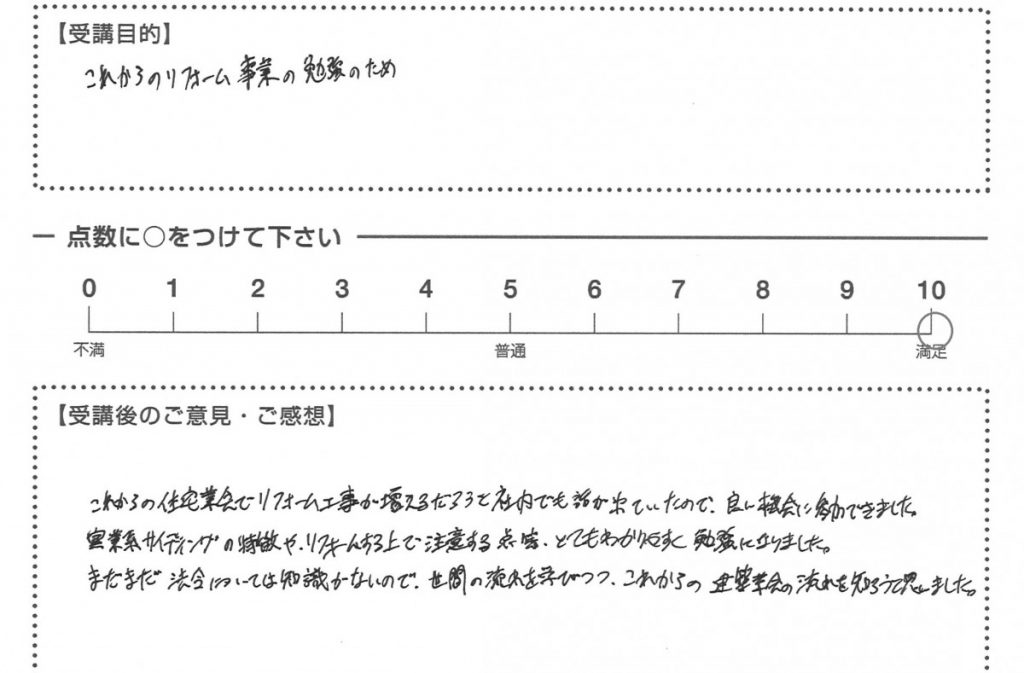 【受講目的】
これからのリフォーム事業の勉強のため
点数に○をつけて下さい
0 1 2 3 4 5 6 7 8 9 10
不満 普通 満足
【受講後のご意見・ご感想】
これからの住宅業会でリフォーム工事が増えるだろうと社内でも話が出ていたので、良い機会に参加できました。
窯業系サイディングの特徴や、リフォームする上で注意する点等、とてもわかりやすく勉強になりました。
まだまだ法令については知識がないので、世間の流れを学びつつ、これからの建築業会の流れを知ろうと思いました。